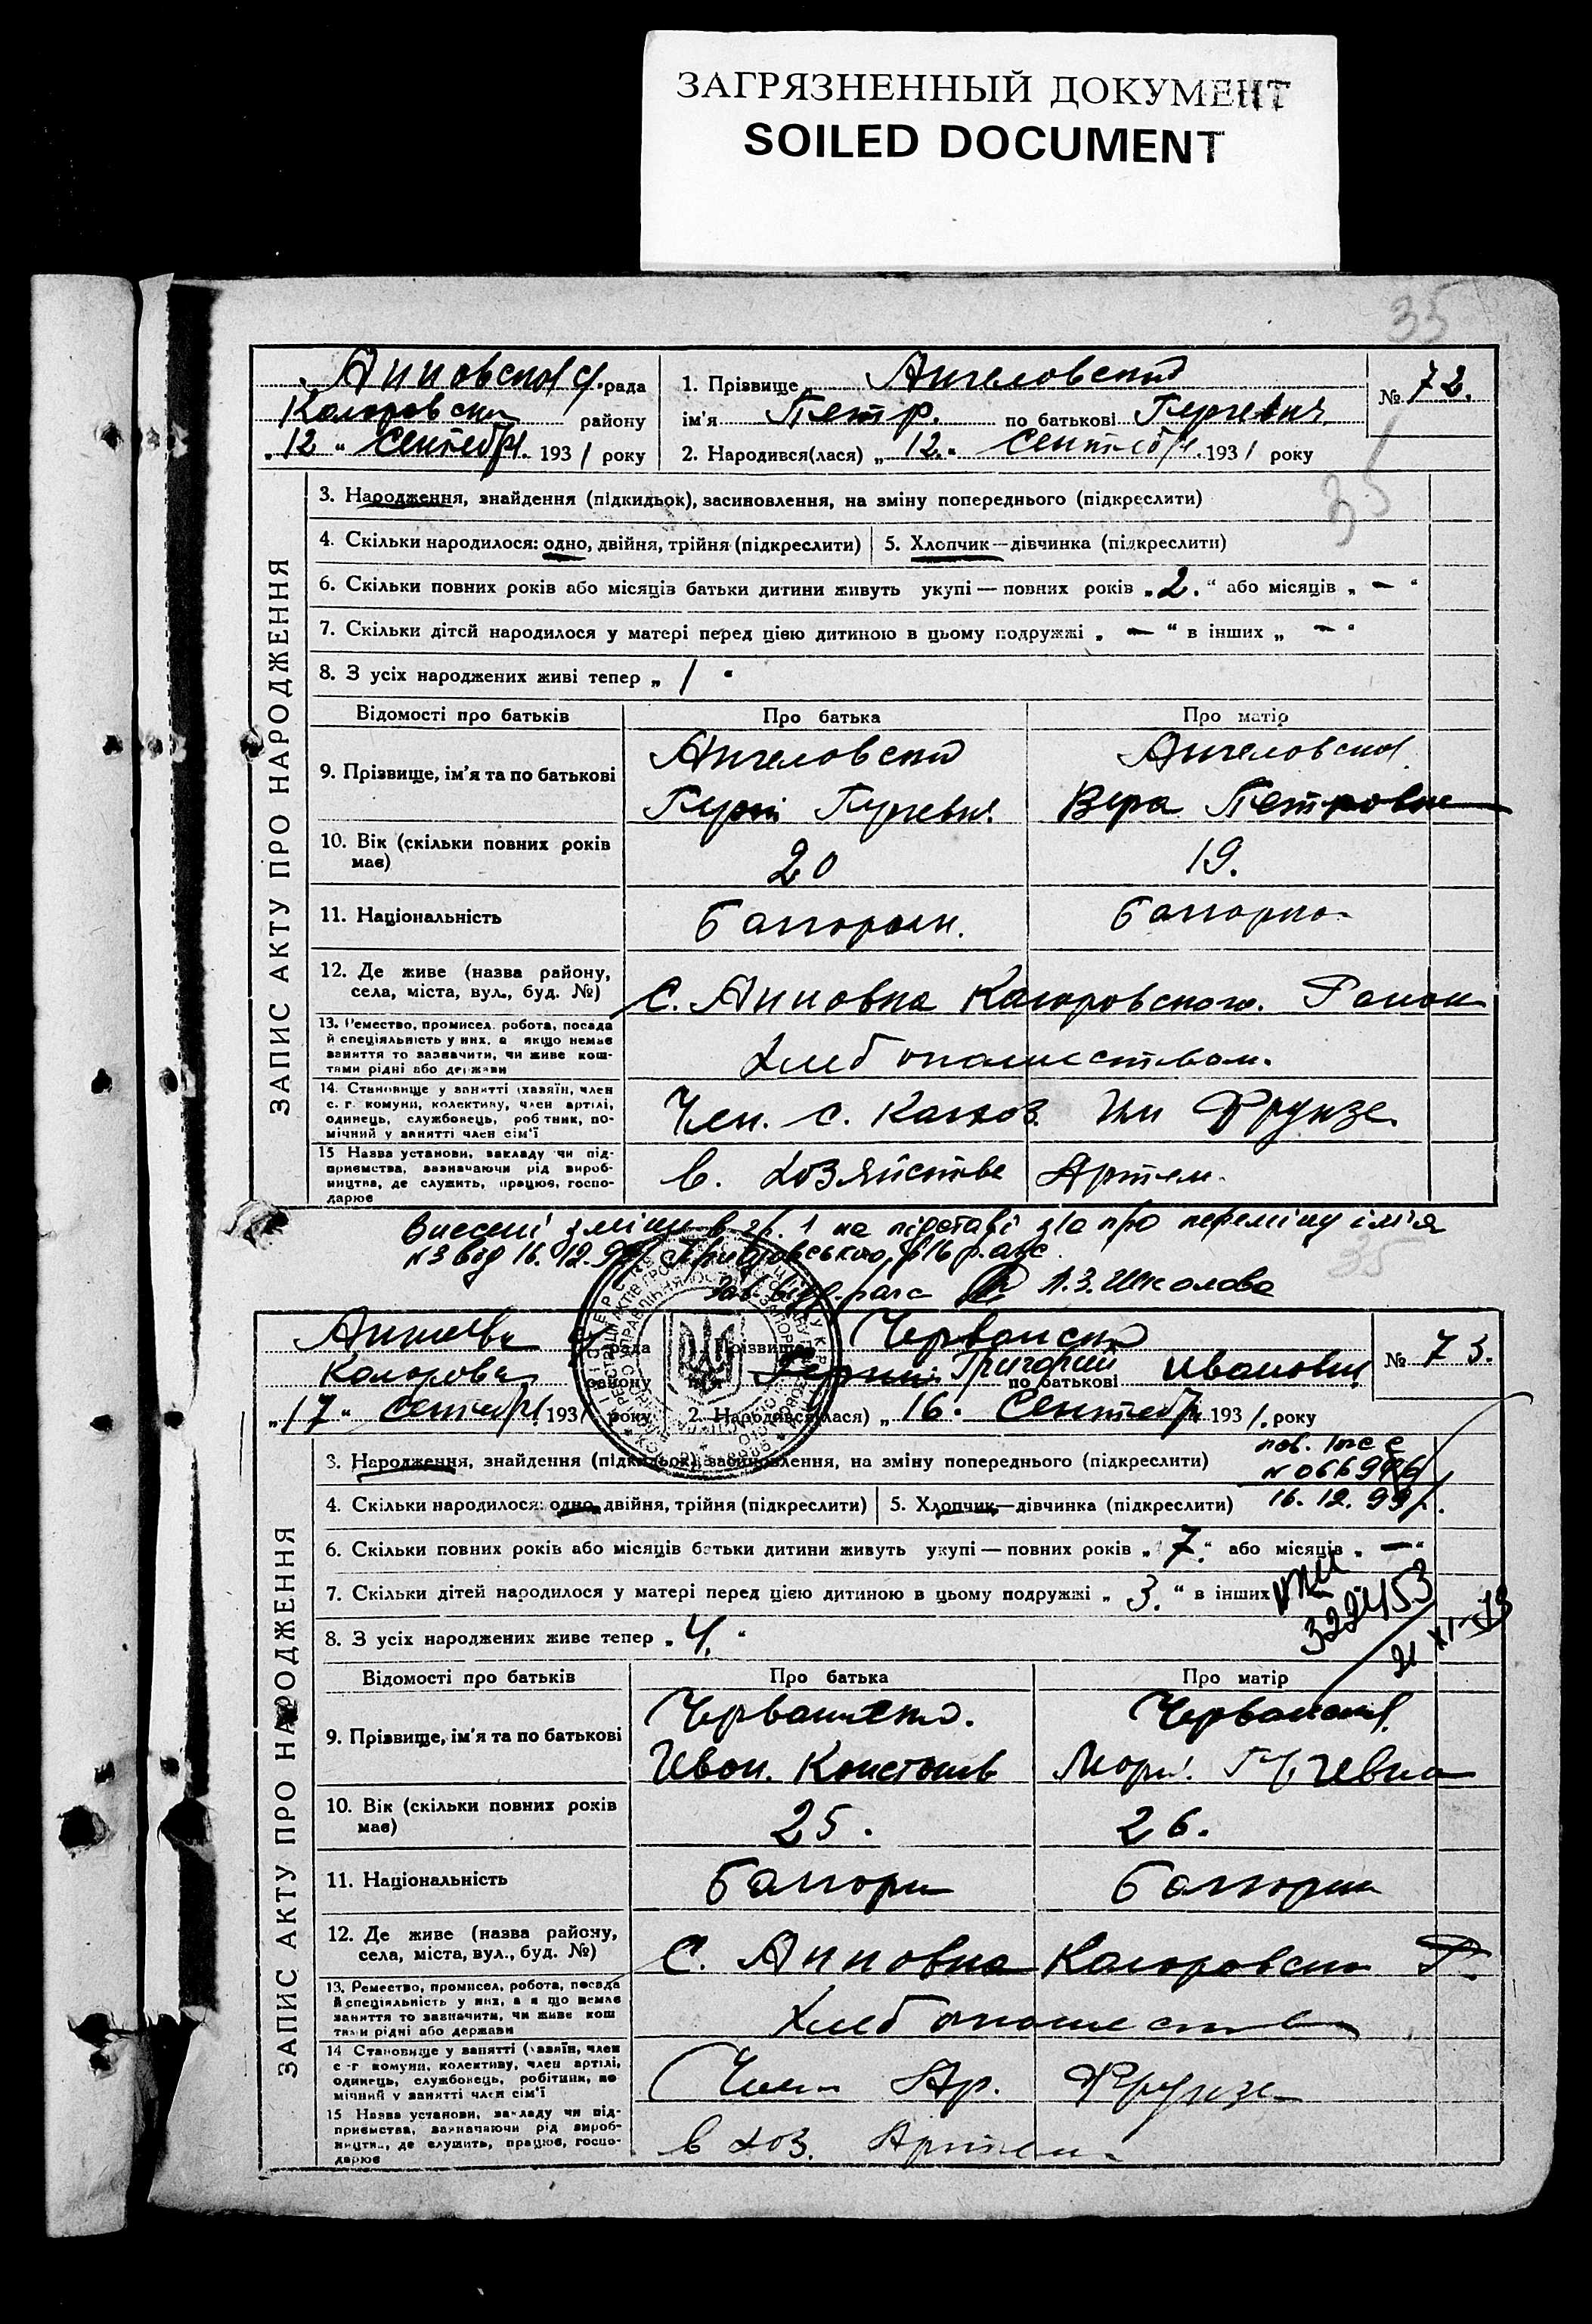 ЗАГРЯЗНЕННЫЙ ДОКУМЕНТ
SOILED DOCUMENT
35
Анновская с/рада
Коларовски району
"12" Сентебр. 1931 року
1. Прізвище Ангеловский
ім'я Петр. по батькові Гургевич
2. Народився(лася) "12." Сентебр. 1931 року
№ 72.
35
ЗАПИС АКТУ ПРО НАРОДЖЕННЯ
3. Народження, знайдення (підкидьок), засиновлення, на зміну попереднього (підкреслити)
4. Скільки народилося: одно, двійня, трійня (підкреслити) 5. Хлопчик—дівчинка (підкреслити)
6. Скільки повних років або місяців батьки дитини живуть укупі — повних років „2.“ або місяців „ — “
7. Скільки дітей народилося у матері перед цією дитиною в цьому подружжі „ — “ в інших „ — “
8. З усіх народжених живі тепер „ 1 “
Відомості про батьків Про батька Про матір
9. Прізвище, ім'я та по батькові
Ангеловский Ангеловская
Гургевич Вера Петровна
10. Вік (скільки повних років має)
20 19.
11. Національність
Болгарин. Болгарка
12. Де живе (назва району, села, міста, вул., буд. №)
С. Анновка Коларовского. Район
13. Ремество, промисел. робота, посада
й спеціяльність у них, а якщо немає
заняття то зазначити, чи живе кош-
тами рідні або держави
Хлебопашеством.
14. Становище у занятті (хазяїн, член
с. г. комуни, колективу, член артілі,
одинець, службовець, робітник, по-
мічний у занятті член сім'ї
Член. с. Колхоз. Им Фрунзе
15 Назва установи, закладу чи під-
приємства, зазначаючи рід вироб-
ництва, де служить, працює, госпо-
дарює
в. хозяйстве Артели.
Внесені зміни в гр. 1 на підставі з/а про переміну ім'я
№3 від 16.12.99 Приазовського р/в рагс
35
Зав. відд. рагс Л.З. Школова
району
"17" Сентебр 1931 року
Прізвище Червански
Григорий по батькові Иванович
2. Народився(лася) „16.“ Сентебр 1931. року
№ 73.
пов.
16.12.99
ЗАПИС АКТУ ПРО НАРОДЖЕННЯ
3. Народження, знайдення (підкидьок), засиновлення, на зміну попереднього (підкреслити)
4. Скільки народилося: одно, двійня, трійня (підкреслити) 5. Хлопчик—дівчинка (підкреслити)
6. Скільки повних років або місяців батьки дитини живуть укупі — повних років „7.“ або місяців „ — “
7. Скільки дітей народилося у матері перед цією дитиною в цьому подружжі „3.“ в інших
8. З усіх народжених живе тепер „4.“
Відомості про батьків Про батька Про матір
9. Прізвище, ім'я та по батькові
Иван. Констант
10. Вік (скільки повних років має)
25. 26.
11. Національність
Болгарин Болгарка
12. Де живе (назва району, села, міста, вул., буд. №)
С. Анновка Коларовски Р.
13. Ремество, промисел, робота, посада
й спеціяльність у них, а якщо немає
заняття то зазначити, чи живе кош
тами рідні або держави
Хлебопашество
14 Становище у занятті (хазяїн, член
с-г комуни, колективу, член артілі,
одинець, службовець, робітник, по
мічний у занятті член сім'ї
Член Ар. Фрунзе
15 Назва установи, закладу чи під-
приємства, зазначаючи рід вироб-
ництв., де служить, працює, госпо-
дарює
в хоз. Артели